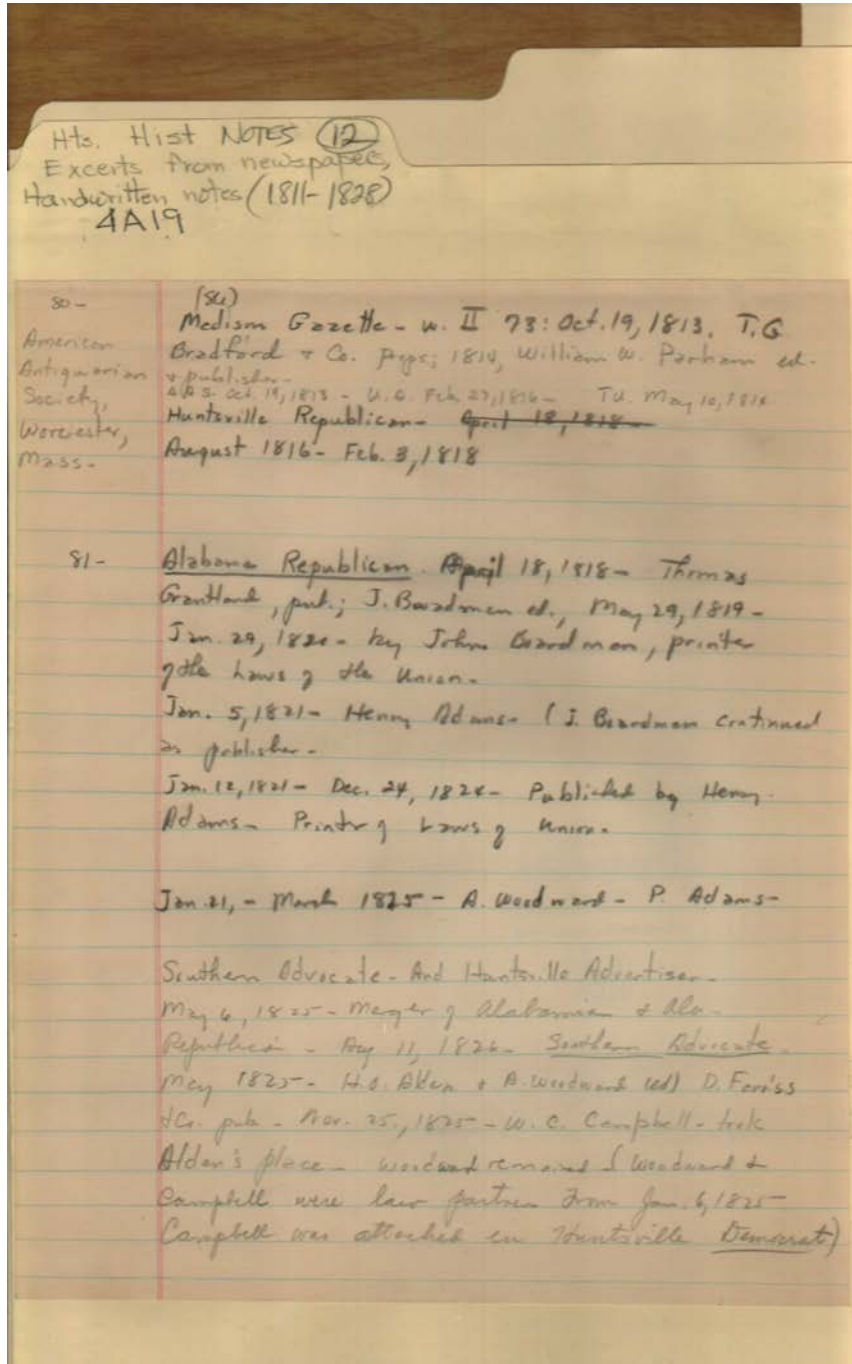 Hts. Hist NOTES (12)
Excerts from newspapers,
Handwritten notes (1811-1828)
4A19
80-
American
Antiquarian
Society,
Worcester,
Mass-
Medism Gazette - w. II 73: Oct. 19, 1813. T.G
Bradford & Co. props; 1814, William W. Parham ed.
& publisher-
Oct. 19, 1813 - Feb. 27, 1816 - Tu. May 10, 1814
Huntsville Republican - April 18, 1818 -
August 1816 - Feb. 3, 1818
81-
Alabama Republican. April 18, 1818 - Thomas
Grantland, pub.; J. Boardman ed., May 29, 1819 -
Jan. 29, 1820 - by John Boardman, printer
of the Laws of the Union.
Jan. 5, 1821 - Henry Adams - (J. Boardman continued
as publisher -
Jan. 12, 1821 - Dec. 24, 1824 - Published by Henry
Adams - Printer of Laws of Union.
Jan. 21, - March 1825 - A. Woodward - P. Adams -
Southern Advocate - And Huntsville Advertiser -
May 6, 1825 - Merger of Alabamian & Ala.
Republican - Aug 11, 1826 - Southern Advocate.
May 1825 - H.O. Alden & A. Woodward (ed) D. Fariss
& Co. pub - Nov. 25, 1825 - W. C. Campbell - took
Alden's place - Woodward remained (Woodward &
Campbell were law partners from Jan. 6, 1825
Campbell was attacked in Huntsville Democrat)